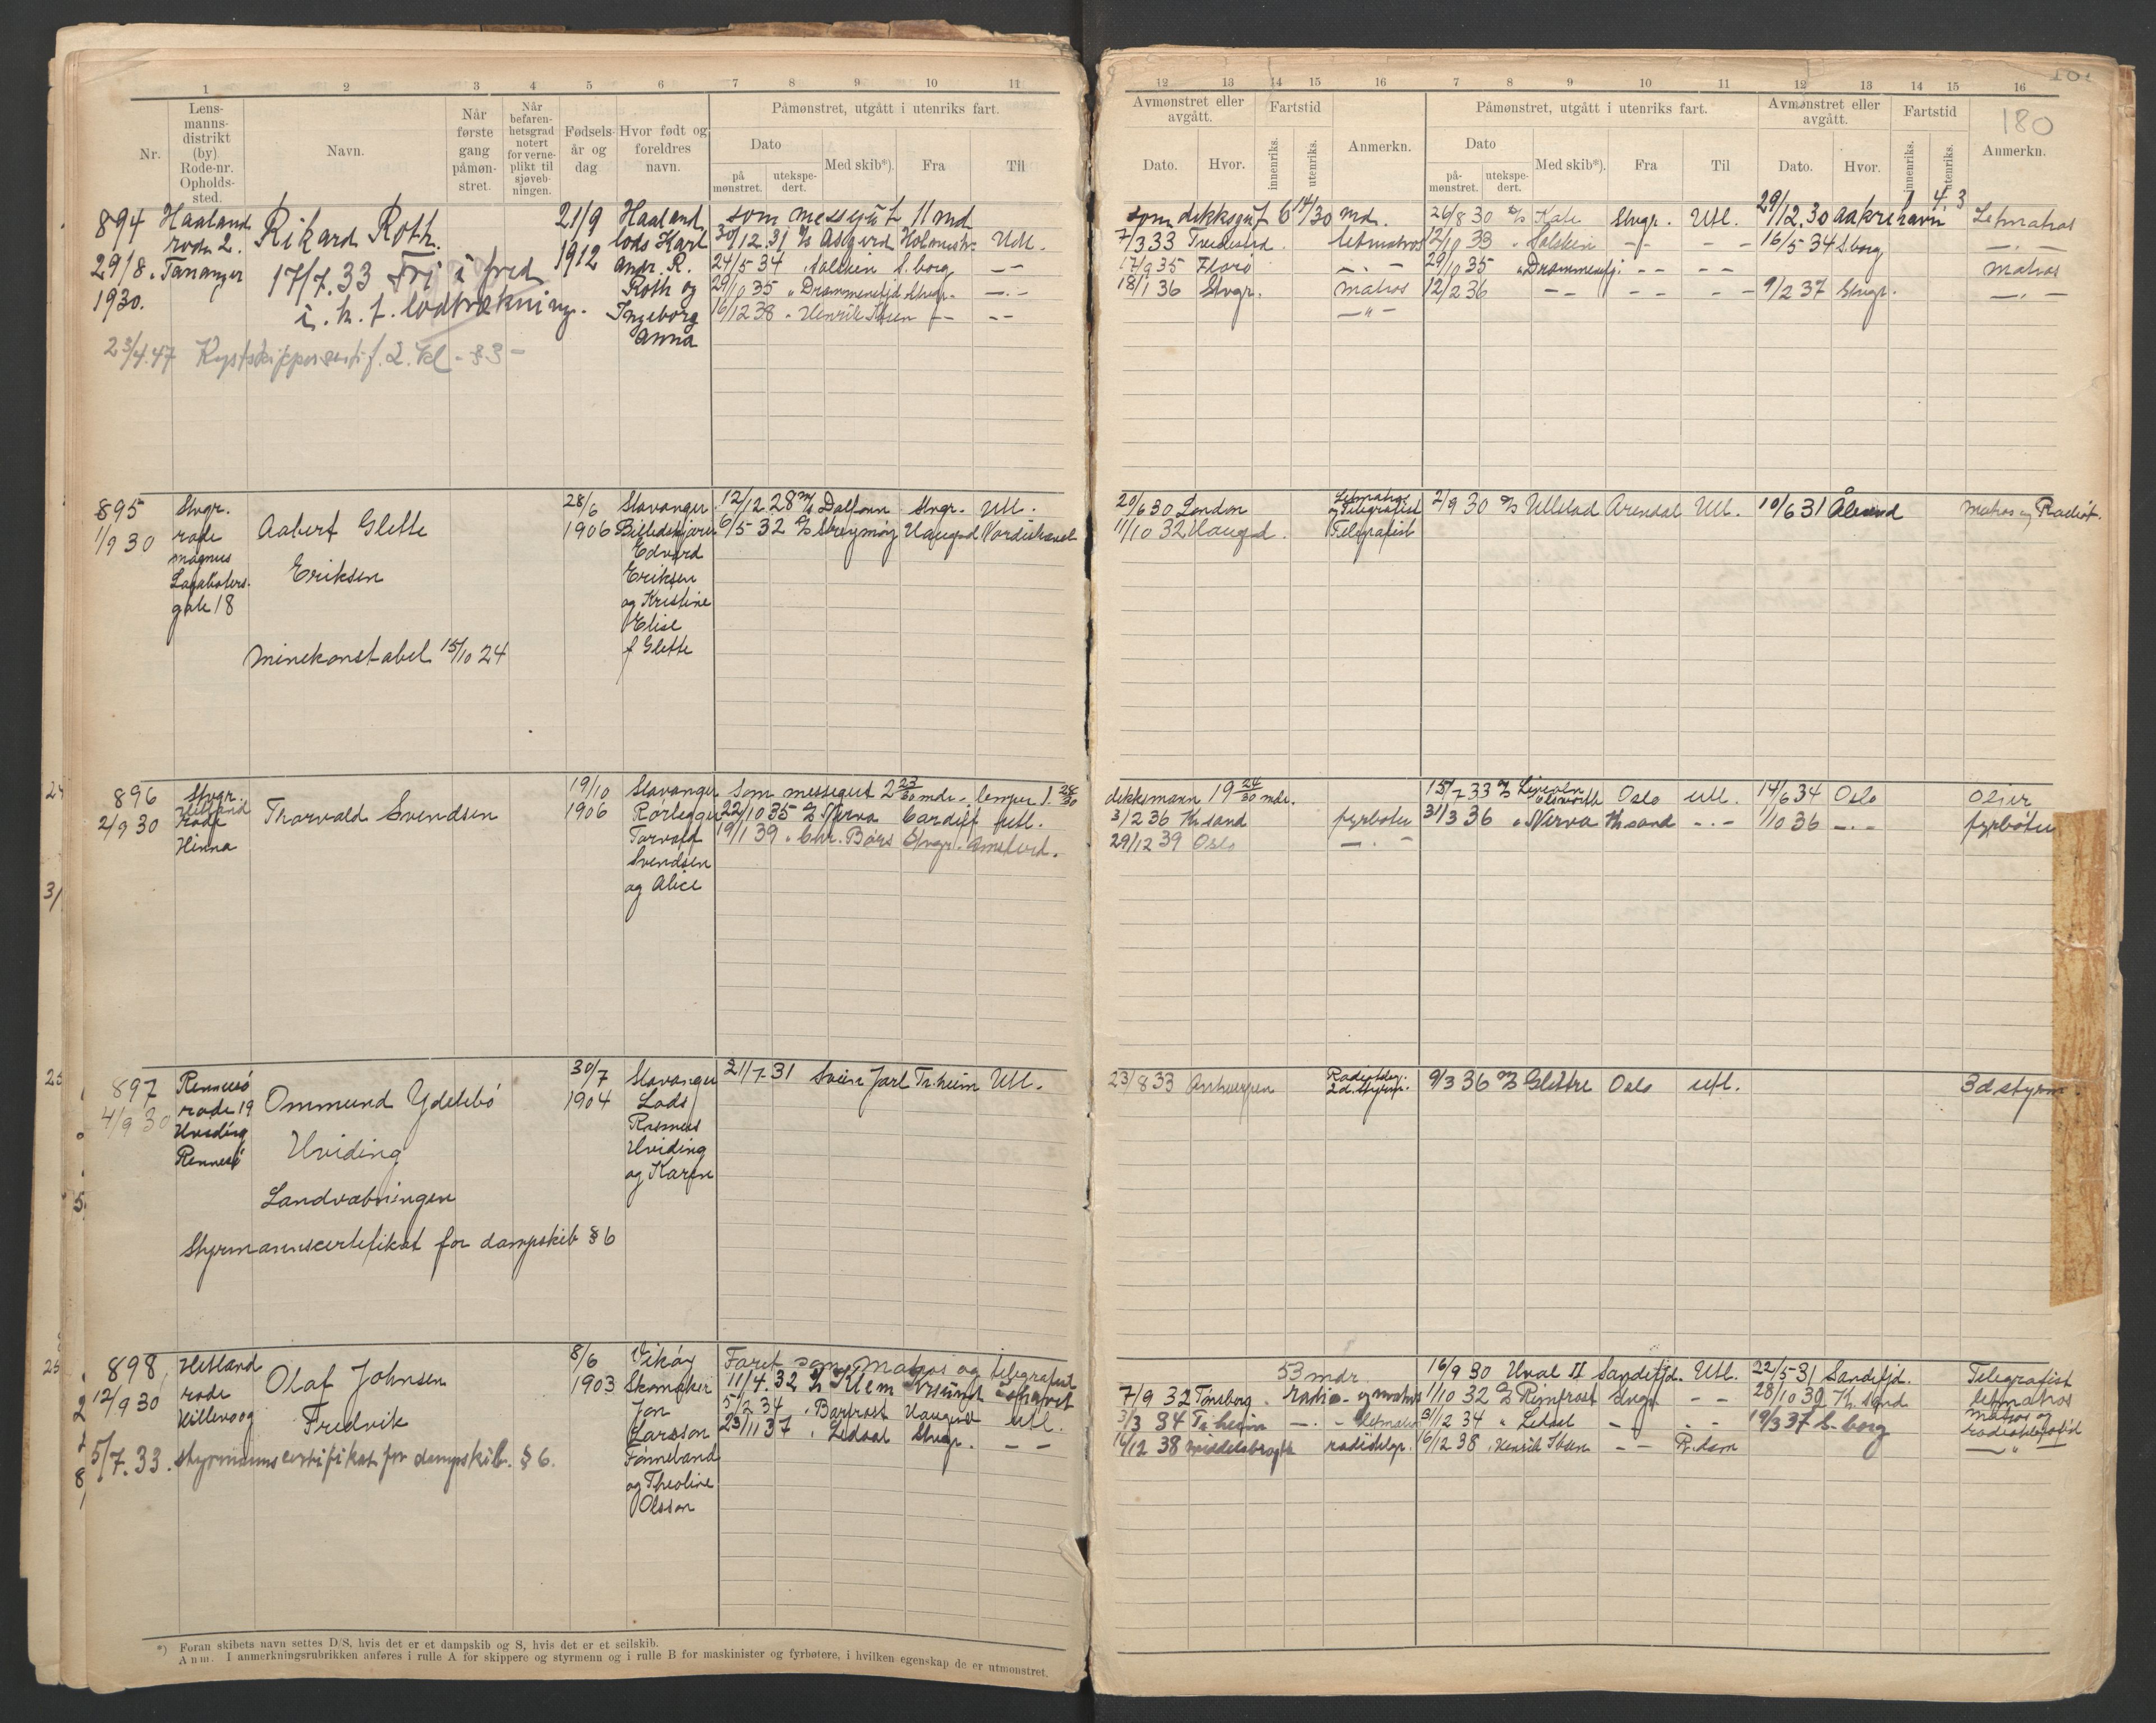 1 2 3 4 5 6 7 8 9 10 11
Nr.
Lens-
manns-
distrikt
(by)
Rode-nr.
Opholds-
sted.
Navn.
Når
første
gang
påmøn-
stret.
Når
befaren-
hetsgrad
notert
for verne-
plikt til
sjøveb-
ningen.
Fødsels-
år og
dag
Hvor født og
foreldres
navn.
Påmønstret, utgått i utenriks fart.
Dato
på
mønstret.
utekspe-
dert.
Med skib*).
Fra
Til
894 Haaland Rikard Roth. 21/9 Haaland som messegut 11 md
rode 2. lods Karl 30/12.31 Asgerd Holmestr. Utl.
29/8. Tananger 17/7.33 Fri i fred 1912 Andr. R. 24/5 34 Solskin S.borg — —
1930. i. h. t. lodtrækning. Roth og 29/10 35 " Drammensfjd. Stvgr. —.—
Ingeborg 16/12 38 " Henrik Ibsen — — — —
Anna
23/4.47 Kystskippersertif. 2. kl - §3 -
895 Stvgr. 28/6 Stavanger 12/12 28 m/s Dalfonn Stvgr. Utl.
1/9 30 rode Aabert Glette 1906 Billedskjærer 6/5 32 Haugsd Nordishavet
Magnus Edvard
Lagabøters- Eriksen Eriksen
gate 18 og Kristine
Elise
Minekonstabel 15/10 24 f Glette
896 Stvgr. 19/10 Stavanger Som messegut 2 23/30 mdr. lemper 1. 28/30
Hetland
2/9 30 rode Thorvald Svendsen 1906 Rørlegger 22/10 35 Nerva Cardiff Utl.
Hinna Torvald 19/1 39 " Chr. Børs Stvgr. Amsterd.
Svendsen
og Alice
897 Rennesö 30/7 Stavanger 21/7.31 Svein Jarl Tr.heim Utl.
4/9 30 rode 19 Ommund Ydstebö 1904 Lods
Hviding Rasmus
Rennesö Hviding Hviding
og Karen
Landvæbningen
Styrmannscertifikat for dampskib §6
898 Hetland Olaf Johnsen 8/6 Vikøy Faret som Matros og telegrafist
12/9 30 rode 1903 Skomaker 11/4.32 Klem Kr.sund Ishavet
Hillevaag Fredvik Jon 5/2 34 " Barfrost Haugsd Utl.
Larsson 23/11 37 " Ledaal Stvgr. — —
5/7.33. Styrmannscertifikat for dampskib. §6. Fønneland
og Theoline
Olsson
*) Foran skibets navn settes D/S, hvis det er et dampskib og S, hvis det er et seilskib.
Anm. I anmerkningsrubrikken anføres i rulle A for skippere og styrmenn og i rulle B for maskinister og fyrbøtere, i hvilken egenskap de er utmønstret.
12 13 14 15 16 7 8 9 10 11 12 13 14 15 16
180
Avmønstret eller
avgått.
Dato.
Hvor.
Fartstid
innenriks.
utenriks.
Anmerkn.
Påmønstret, utgått i utenriks fart.
Dato
på-
mønstret.
utekspe-
dert.
Med skib*).
Fra
Til
Avmønstret eller
avgått.
Dato.
Hvor.
Fartstid
innenriks.
utenriks.
Anmerkn.
som dekksgut 6 14/30 md. 26/8 30 Kate Stvgr. Utl. 29/12.30 Aakrehavn 4.3 Letmatros
7/3 33 letmatros 12/10 33 " Solskin — — — — 16/5 34 S.borg —.—
17/9 35 Florö —.— 29/10 35 " Drammensfj. — — — — matros
18/1 36 Stvgr. matros 12/2 36 — — — — — — 9/2 37 Stvgr. —.—
— " —
20/6 30 London Letmatros og Telegrafist 2/9 30 Ullstad Arendal Utl. 10/6 31 Ålesund Matros og Radiot.
11/10 32 Haugsd. Telegrafist
dekksmann 19 24/30 mdr. 15/7 33 Lincoln Ellsworth Oslo Utl. 14/6 34 Oslo Oljer
3/2 36 Kr.sand fyrböter 31/3 36 " Nerva Kr.sand —.— 1/10 36 —.— fyrböter
29/12 39 Oslo —.—
23/8 33 Antwerpen Radiotelegr. 2d.styrm. 9/3 36 Glittre Oslo Utl. 3d styrm.
53 mdr. 16/9 30 Hval II Sandefjd. Utl. 22/5-31 Sandefjd. Telegrafist
7/9 32 Tönsberg. radio- og matros 1/10 32 Rimfrost Stvgr — — 28/10 32 Kr.sund letmatros
3/3 34 Tr.heim —.— letmatros 3/12 34 " Ledaal — — 19/3 37 S.borg Matros og radiotelegrafist
14/12 38 Middelsbrogh radiotelegr. 16/12 38 " Henrik Ibsen — — R.dam — " —